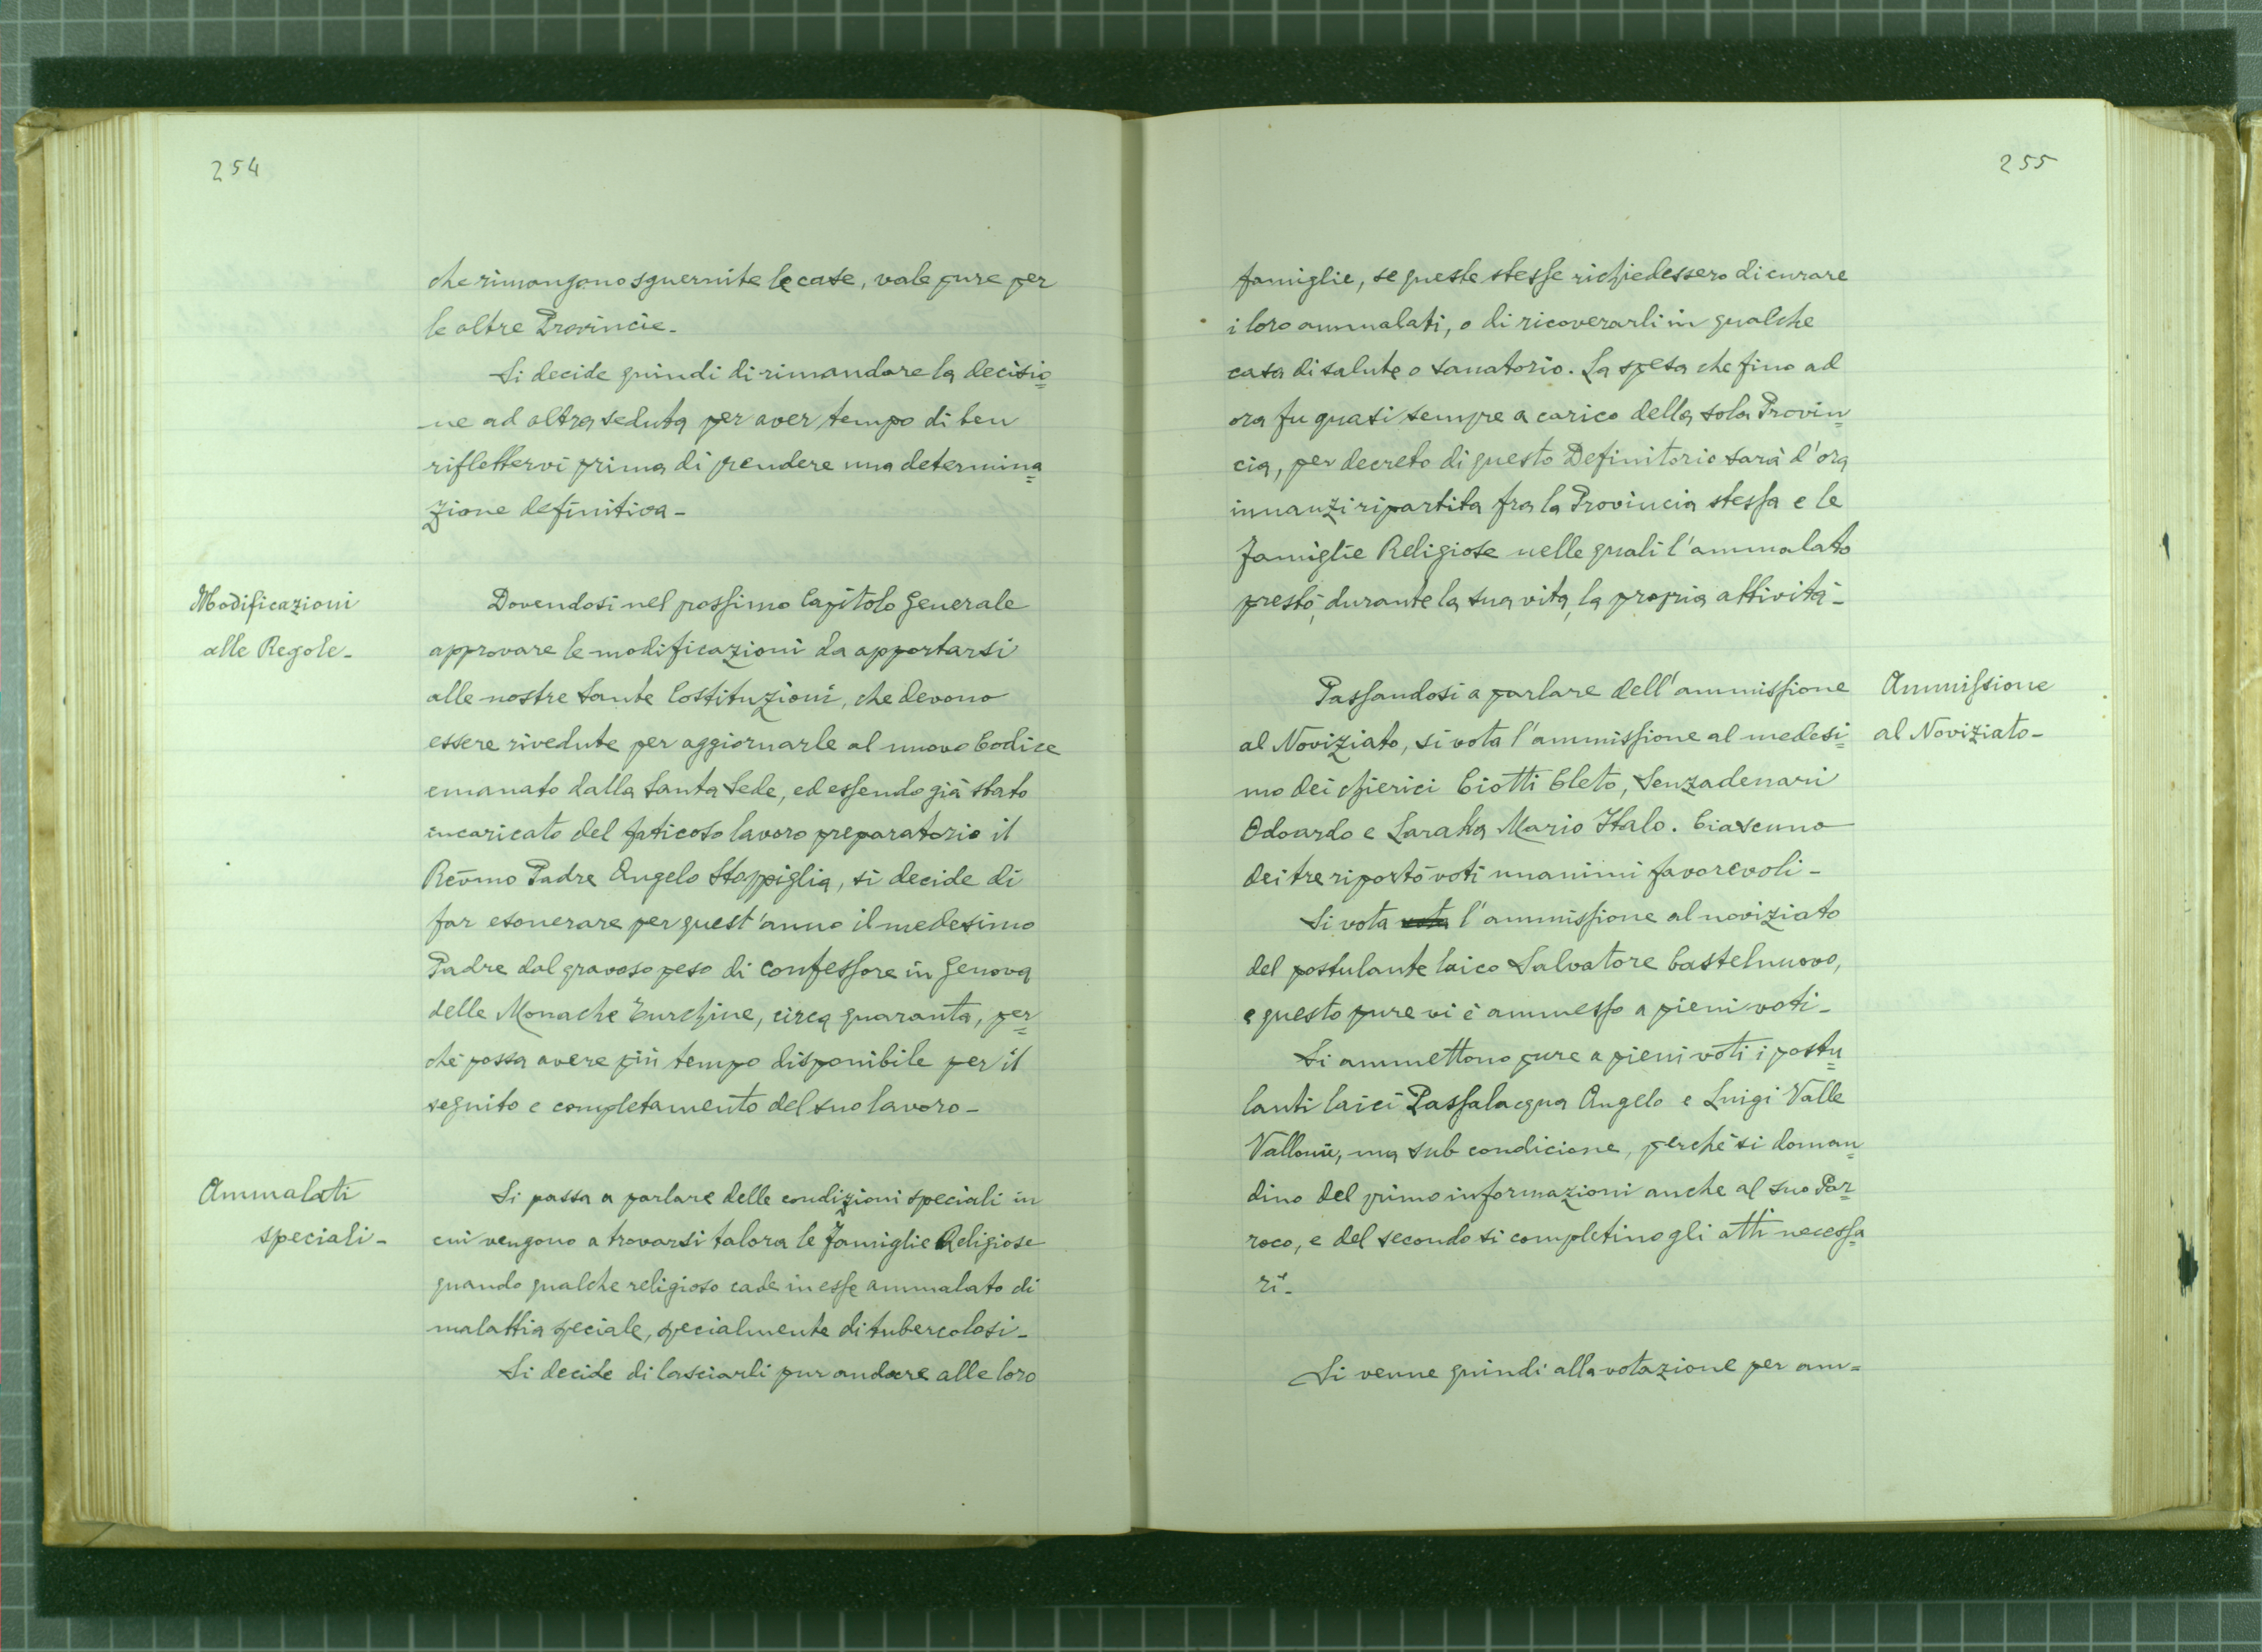 254
che rimangono sguernite le case, vale pure per
le altre Provincie.
Si decide quindi di rimandare la decisio=
ne ad altra seduta per aver tempo di ben
riflettervi prima di prendere una determina=
zione definitiva -
Modificazioni
alle Regole -
Dovendosi nel prossimo Capitolo Generale
approvare le modificazioni da apportarsi
alle nostre Sante Costituzioni, che devono
essere rivedute per aggiornarle al nuovo Codice
emanato dalla Santa Sede, ed essendo già stato
incaricato del faticoso lavoro preparatorio il
Rev̄mo Padre Angelo Stoppiglia, si decide di
far esonerare per quest'anno il medesimo
Padre dal gravoso peso di confessore in Genova
delle Monache Turchine, circa quaranta, per=
chè possa avere più tempo disponibile per il
seguito e completamento del suo lavoro -
Ammalati
speciali -
Si passa a parlare delle condizioni speciali in
cui vengono a trovarsi talora le Famiglie Religiose
quando qualche religioso cade in esse ammalato di
malattia speciale, specialmente di tubercolosi -
Si decide di lasciarli pur andare alle loro
255
famiglie, se queste stesse richiedessero di curare
i loro ammalati, o di ricoverarli in qualche
casa di salute o sanatorio. La spesa che fino ad
ora fu quasi sempre a carico della sola Provin=
cia, per decreto di questo Definitorio sarà d'ora
innanzi ripartita fra la Provincia stessa e le
Famiglie Religiose nelle quali l'ammalato
prestò, durante la sua vita, la propria attività -
Ammissione
al Noviziato -
Passandosi a parlare dell'ammissione
al Noviziato, si vota l'ammissione al medesi=
mo dei chierici Ciotti Cleto, Senzadenari
Odoardo e Laratta Mario Italo. Ciascuno
dei tre riportò voti unanimi favorevoli -
Si vota vota l'ammissione al noviziato
del postulante laico Salvatore Castelnuovo,
e questo pure vi è ammesso a pieni voti -
Si ammettono pure a pieni voti i postu=
lanti laici Passalacqua Angelo e Luigi Valle
ma sub condicione, perchè si doman=
dino del primo informazioni anche al suo Par=
roco, e del secondo si completino gli atti necessa=
ri -
Si venne quindi alla votazione per am=